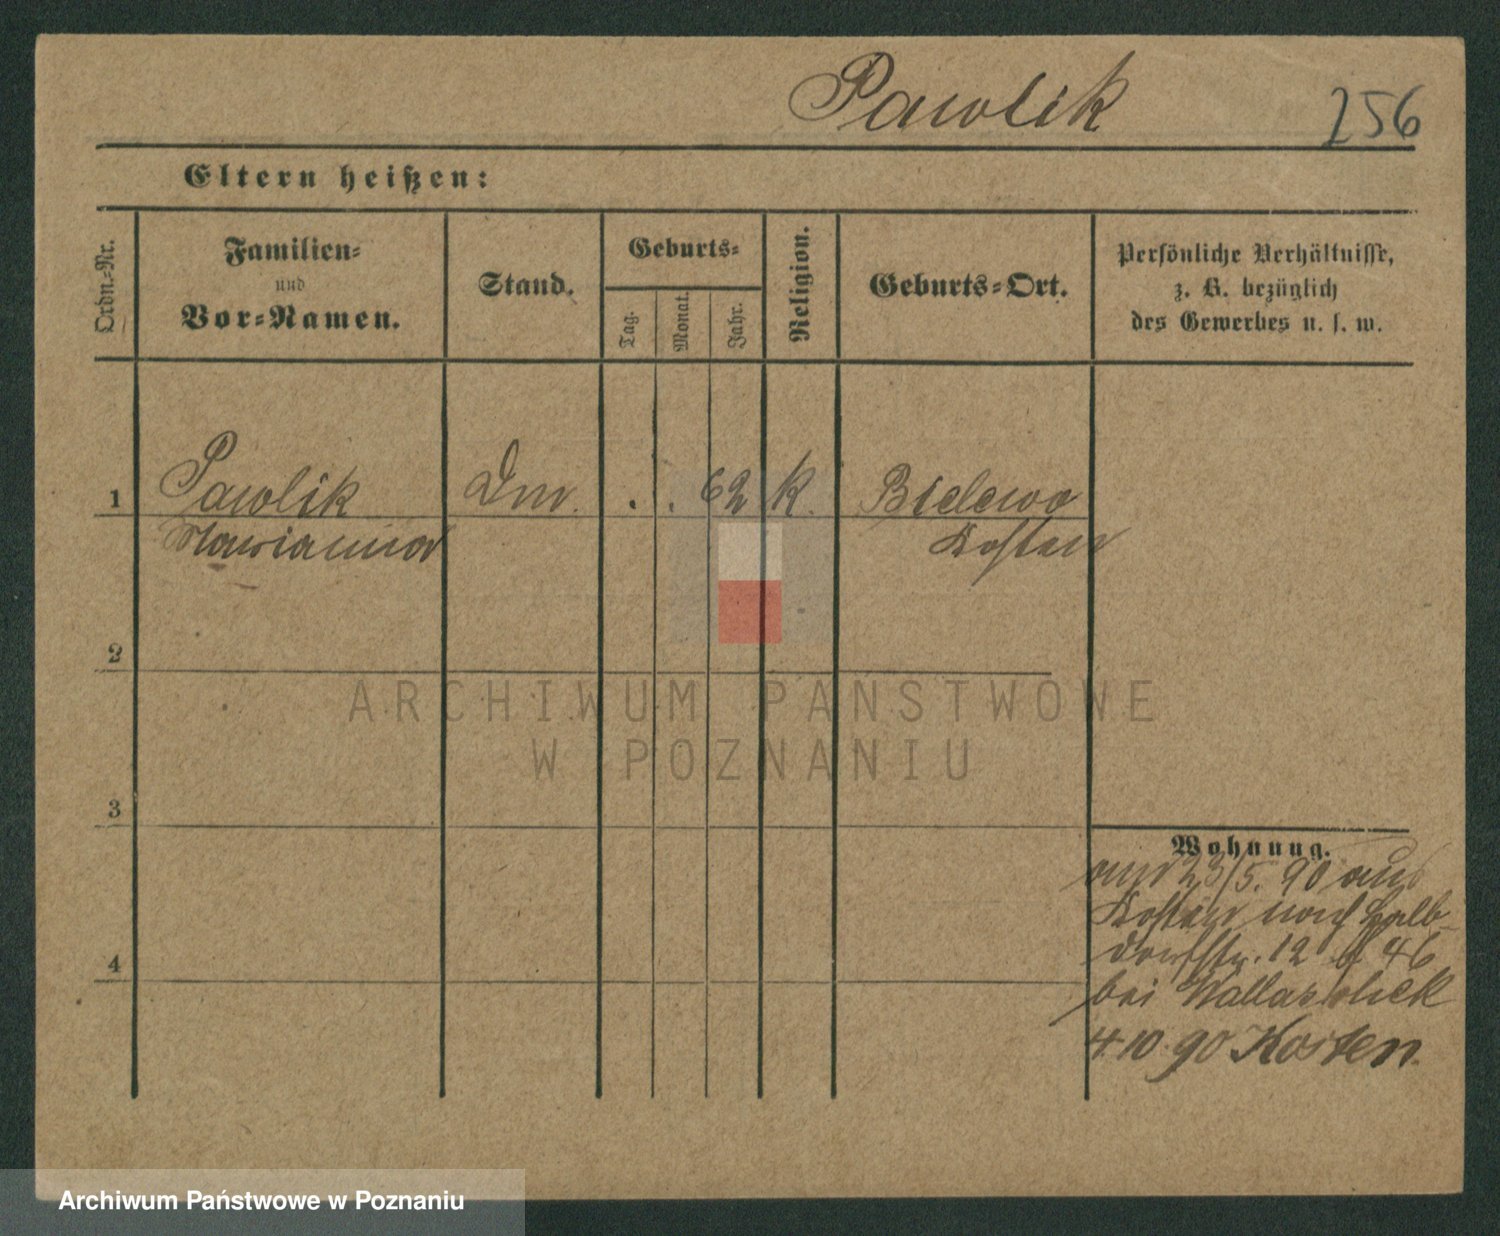 Pawlik 256
Eltern heißen:
Ordn.-Nr.
Familien-
und
Vor-Namen.
Stand.
Geburts-
Tag.
Monat.
Jahr.
Religion.
Geburts-Ort.
Persönliche Verhältnisse,
z. B. bezüglich
des Gewerbes u. s. w.
1 Pawlik Dm. . . 62 K. Bielewo
Marianna Kosten
2
3
4
Wohnung.
23/5. 90 aus
Kosten nach Halb-
dorfstr. 12 46
bei
4.10.90 Kosten.
ARCHIWUM PAŃSTWOWE
W POZNANIU
Archiwum Państwowe w Poznaniu